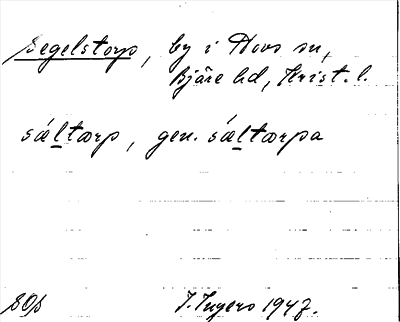 Segelstorp, by i Hovs sn,
Bjäre hd, Krist. l.
sæltærp, gen. sæltærpa
SOS J. Ingers 1947.